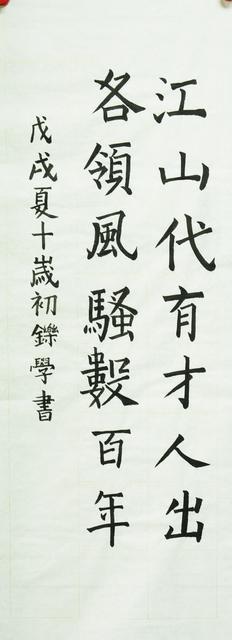 江山代有才人出
各領風騷數百年
戊戌夏十歲初鑠學書